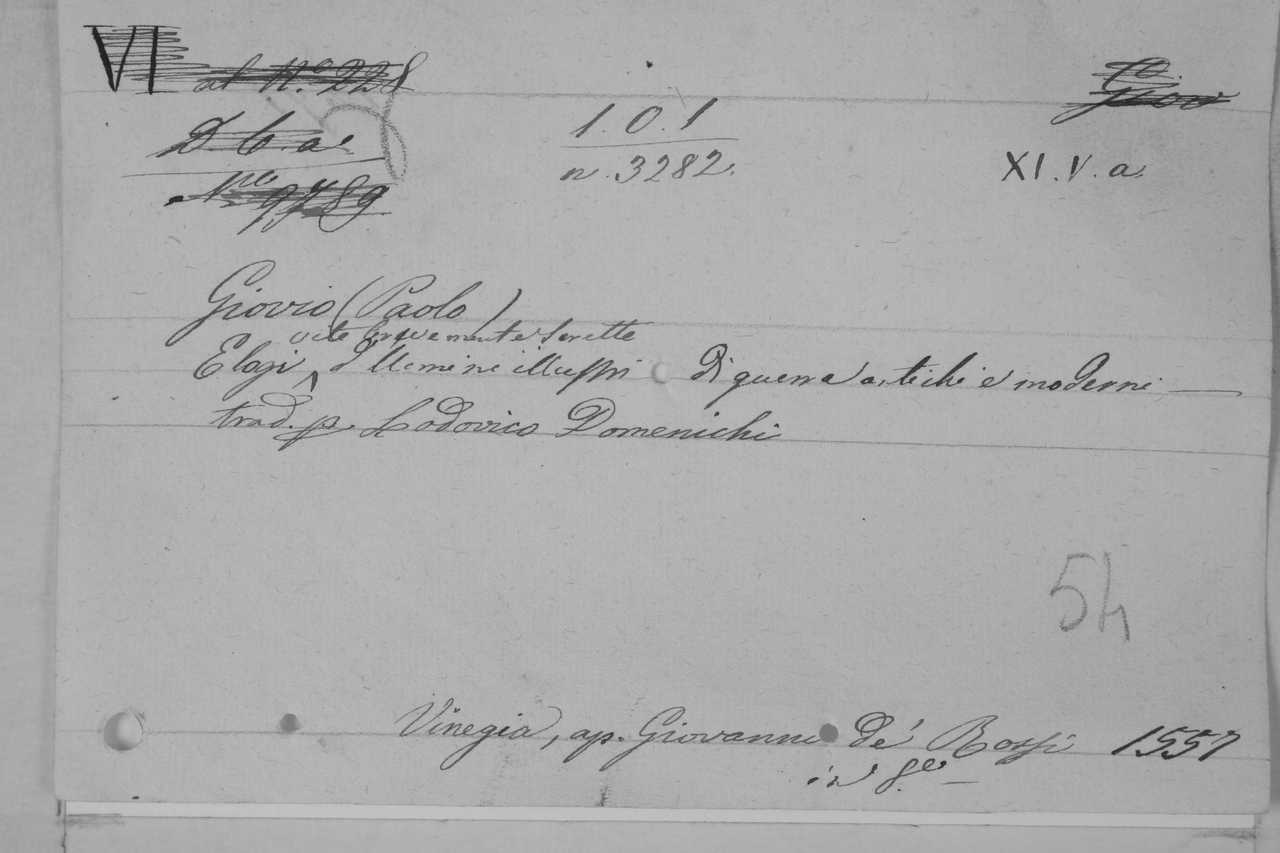 VI al N.o 228
D b. a
N.ro 9789
1.0.1
n. 3282.
Giov
XI.V.a.
Giovio (Paolo)
vite brevemente scritte
Elogi d'Uomini illustri di guerra antichi e moderni
trad. p. Lodovico Domenichi
54
Vinegia, ap. Giovanni de' Rossi 1557
in 8.o